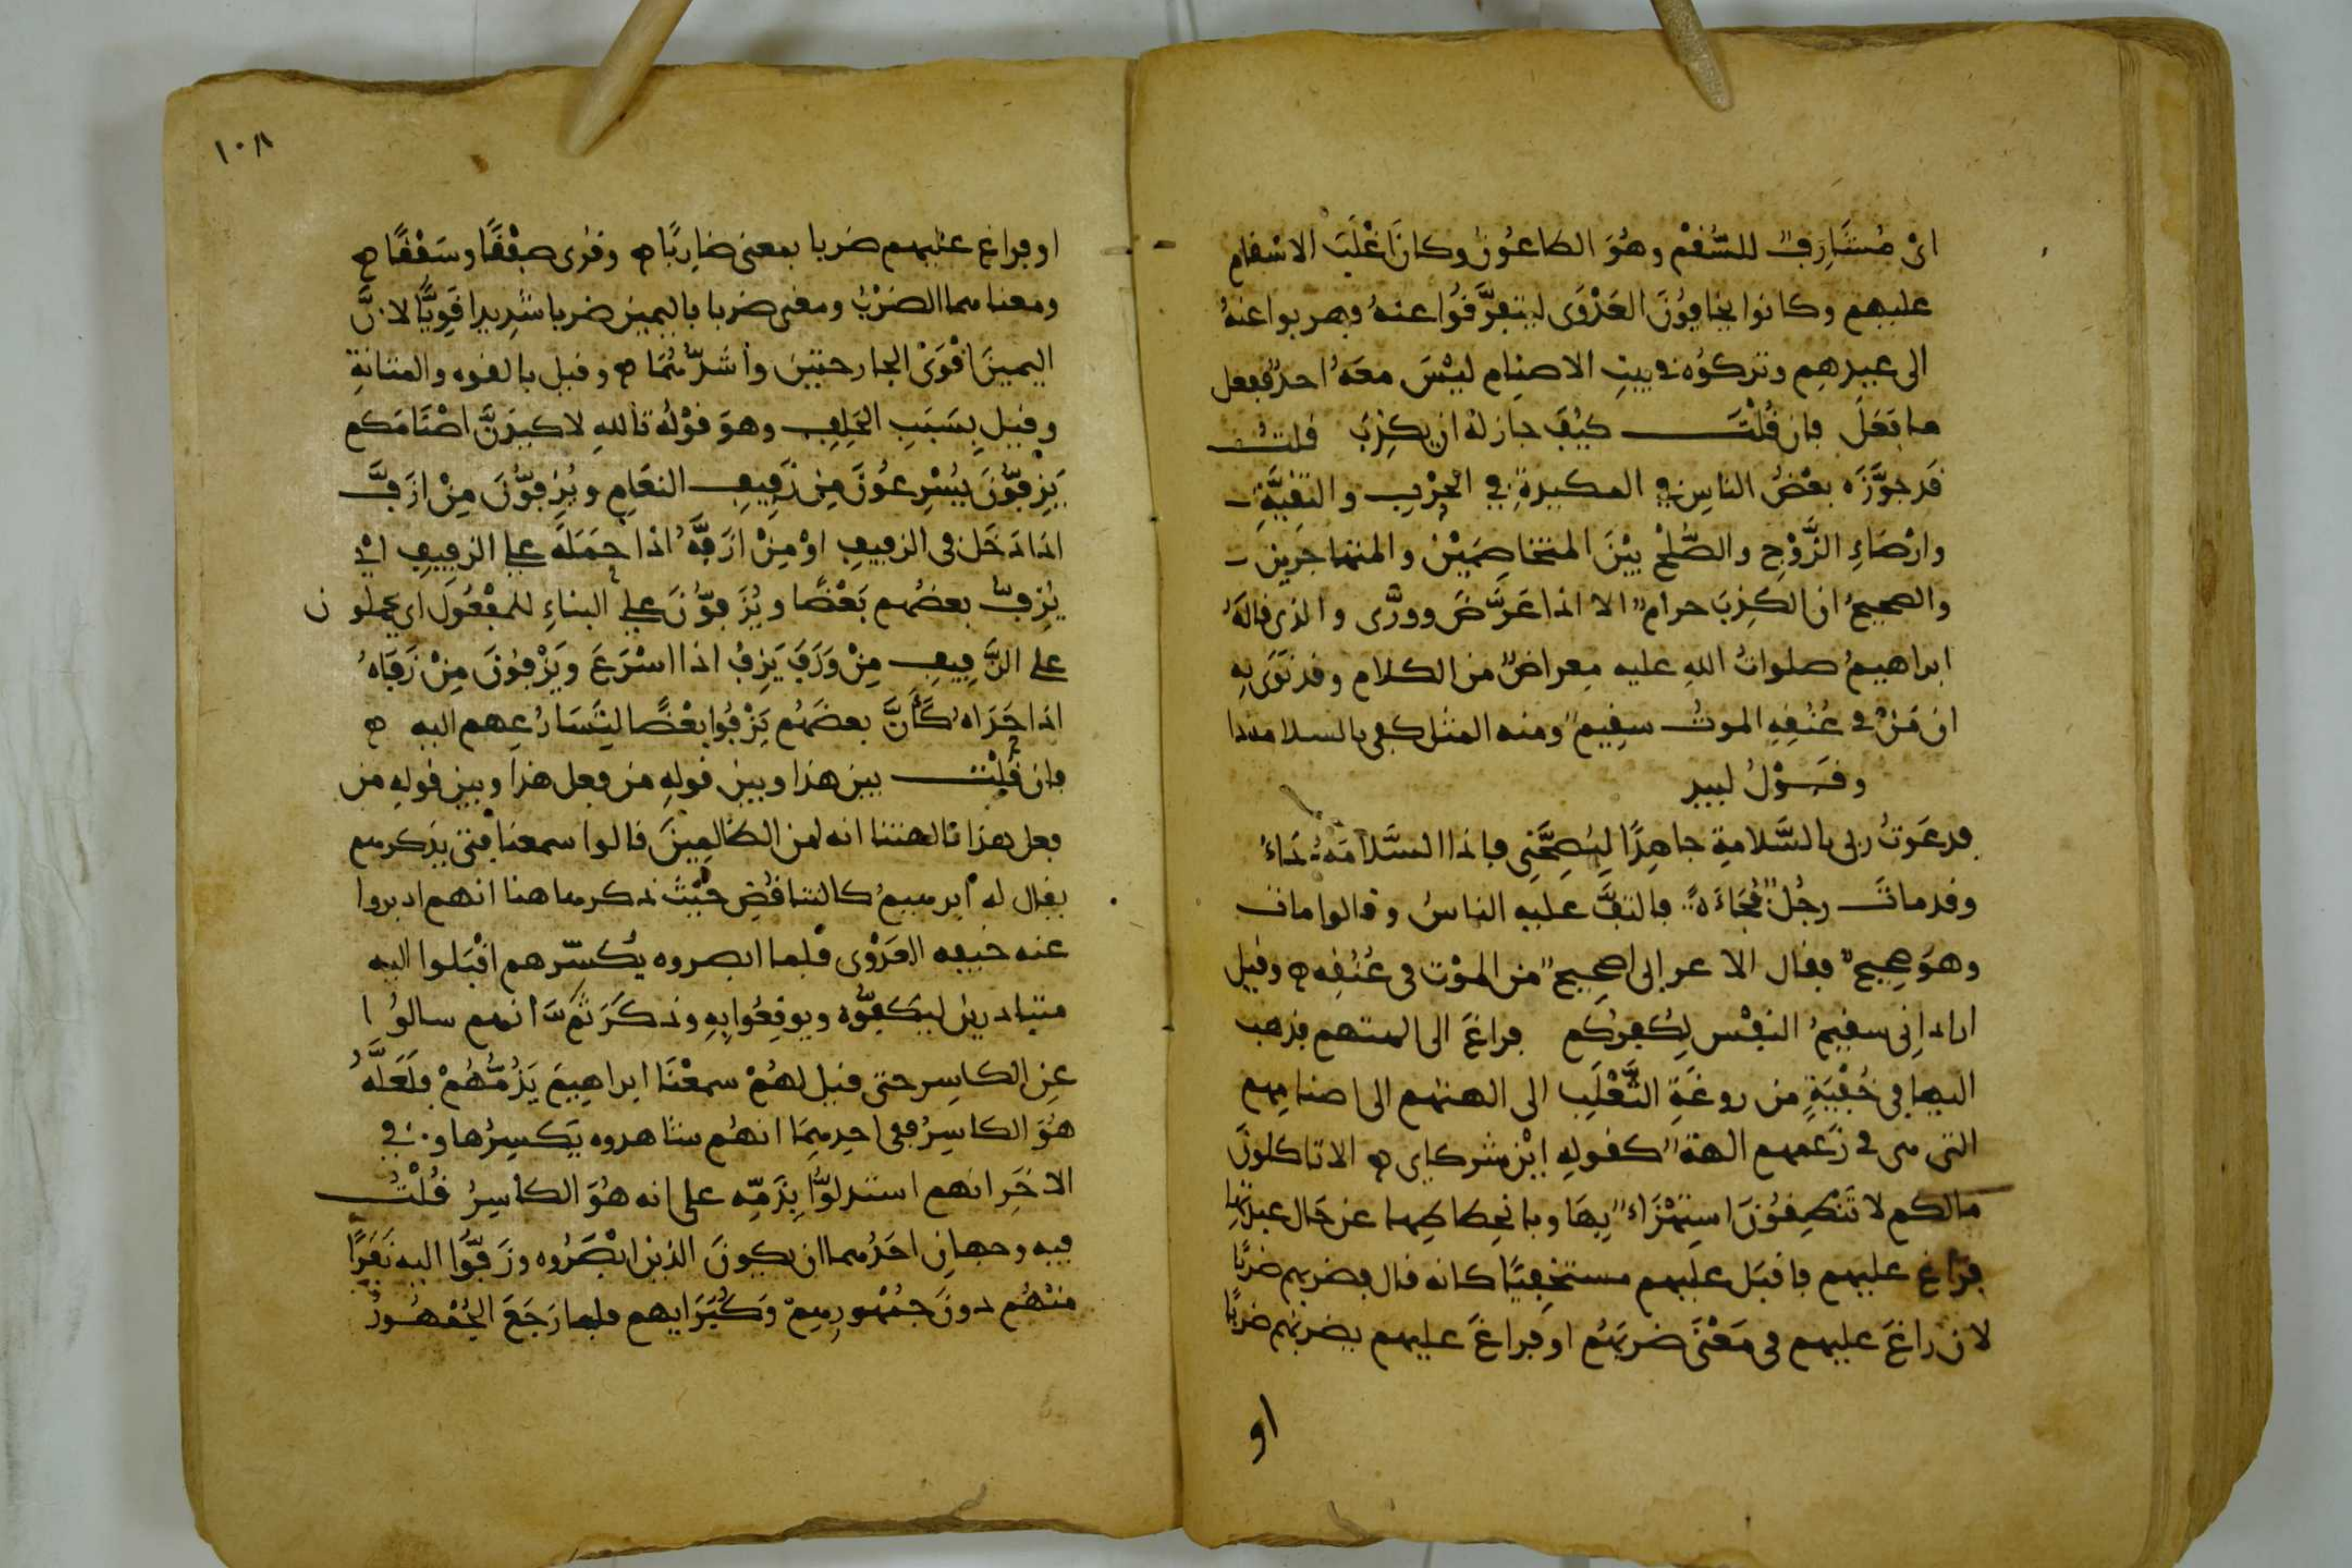 اىْ مُشَارِفٌ للسُّقْمِ وهُوَ الطاعُونُ وكانَ اَغْلَبَ الاسْقام
عليهم وكانوا يخافُونَ العَدْوَى ليتفَرَّقُوا عنهُ فهربوا عنهُ
الى عيدِهِم وتركوُه في بيتِ الاصنامِ ليْسَ معَهُ احدٌ ففعل
ما فَعَلَ فان قُلْتَ كيْفَ جاز لهُ ان يكْذِبَ قلتُ
قَد جوَّزَه بعْضُ الناسِ في المكيدةِ في الحَرْبِ والتقيَّةِ
وارْضاءِ الزَّوْجِ والصُّلْحِ بيْنَ المتخاصمَيْنِ والمتهاجَرين
والصحيحُ ان الكَذِبَ حرامٌ الا اذا عَرَّضَ وورَّى والذى قالهُ
ابراهيمُ صلواتُ اللهِ عليه مِعراضٌ من الكلام وقد نَوَى بِهِ
ان مَنْ في عُنُقِهِ الموتُ سقِيمٌ ومنه المثل كفى بالسلامة دا
وقَوْلُ لبيد
فدعَوتُ ربى بالسَّلامةِ جاهِدًا ليُصِحَّنِى فاذا السَّلامَةُ دَاءُ
وقد ماتَ رجُلٌ فُجَاءَةً فالتفَّ عليه الناسُ وقالوا مات
وهوَ صحِيحٌ فقال الاعرابى اصحِيحٌ من الموْت فى عُنُقِه ه وقيل
اراد اِنى سقيمُ النفْس لِكُفركم فراغَ الى الهتهم فذهب
اليها في خُفْيَةٍ من روغَةِ الثَّعْلَبِ الى الهتهم الى اصنامِهم
التى هى في زَعمهم الهةٌ كقولهِ ايْن شركاى ه الا تاكلونَ
مالكم لا تَنْطِقُونَ استِهْزَاءٌ بِهَا وبانحِطاطِها عن حَال عبدَتِها
فرَاغَ عليهم فاقبَل عليهم مستخفِيًا كانه قال فضربهم ضربًا
لان راغَ عليهم فى مَعْنَى ضربَهُم او فراغَ عليهم يضربُهم ضربًا
او
١٠٨
او فراغ عليهم ضربا بمعنى ضَارِبًا ه وقرُى صفْقًا وسَفْقًا ه
ومعناهما الضَرْبُ ومعنى ضربا باليمين ضربا شدِيدا قَوِيًّا لانَّ
اليمينَ اقْوَىْ الجارحتيْنِ واَشَدُّهُمَا ه وقيل بالقوه والمتَانةِ
وقيل بِسَبَبِ الحَلِفِ وهوَ قوْلُهُ تاللهِ لاكيدَنَّ اصْنَامَكم
يَزِفُّونَ يُسْرِعُونَ مِن زَفِيفِ النعَامِ ويُزِفّونَ مِنْ ازَفَّ
اذا دَخَل فى الزفيفِ اوْ مِنْ ازَفَّهُ اذا حَمَلَهُ على الزفيفِ اىْ
يُزِفُّ بعضُهم بَعْضًا ويُزَفّونَ على البناءِ للمفْعُولِ اى يحملون
على الزَّفِيفِ مِنْ وَزَفَ يَزِفُ اذا اسْرَعَ ويَزْفُونَ مِنْ زَفَاهُ
اذا حَدَاهُ كَاَنَّ بعضَهُم يَزْفُوا بعْضًا لِتَسَارُعِهم اليه ه
فان قُلْتَ بين هذا وبين قولهِ من فعل هذا وبين قولهِ من
فعل هذا بالهتنا انه لمن الظالِمِينَ قالوا سمعنا فتى يذكرهم
يقال له ابرهيمُ كالتناقُضِ حَيْثُ ذكر هاهنا انهم ادبروا
عنه خيفه العَدْوَى فلما ابصروه يُكسّرهم اقْبَلوا اليه
متبادرين ليَكفُّوه ويوقعُوا بِهِ وذكَرَ ثَمَّ انهم سالوُا
عنِ الكاسِر حتى قيل لهُمْ سمعْنَا ابراهِيمَ يَذُمُّهُمْ فلَعَلَّهُ
هُوَ الكاسِرُ ففى احدِهِمَا انهُم شاهدوه يَكسِرُها وفي
الاخَرِ انهم استدلوُّا بِذَمِّهِ على انه هُوَ الكاسِرُ قُلْتُ
فيه وجهانِ احَدُهما ان يكونَ الذين ابْصَرُوه وزَفُّوا اليه نَفَرًا
منهُم دونَ جمُهورِهِمْ وَكُبَرَايهم فلما رَجَعَ الجُمْهُورُ